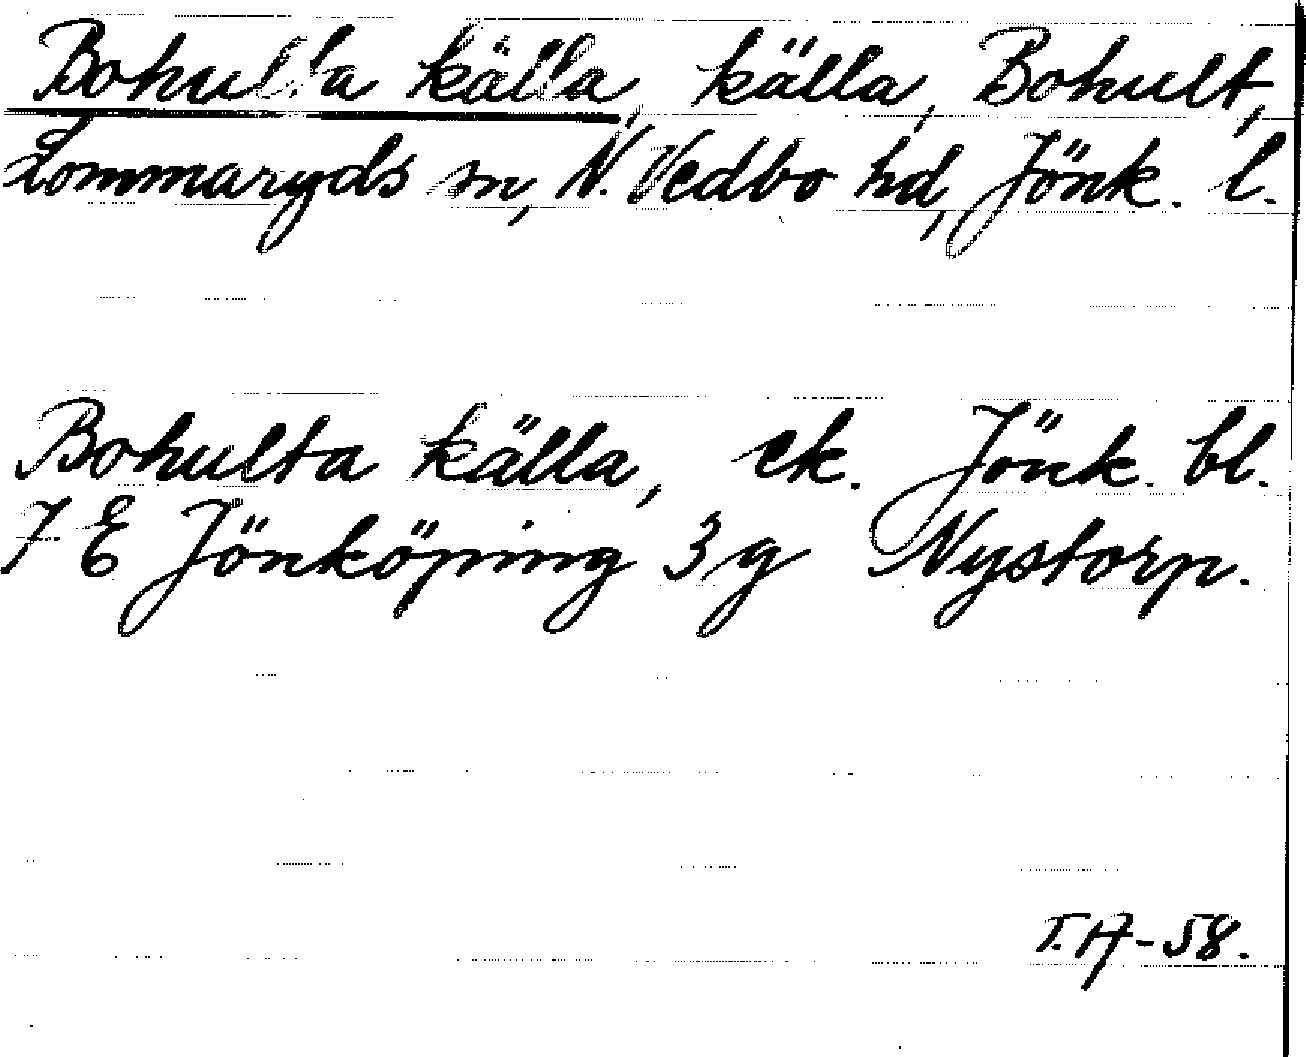 Bohulta källa, källa, Bohult,
Lommaryds sn, N. Vedbo hd, Jönk. l.
Bohulta källa, ek. Jönk. bl.
7 E Jönköping 3 g Nystorp.
-58.